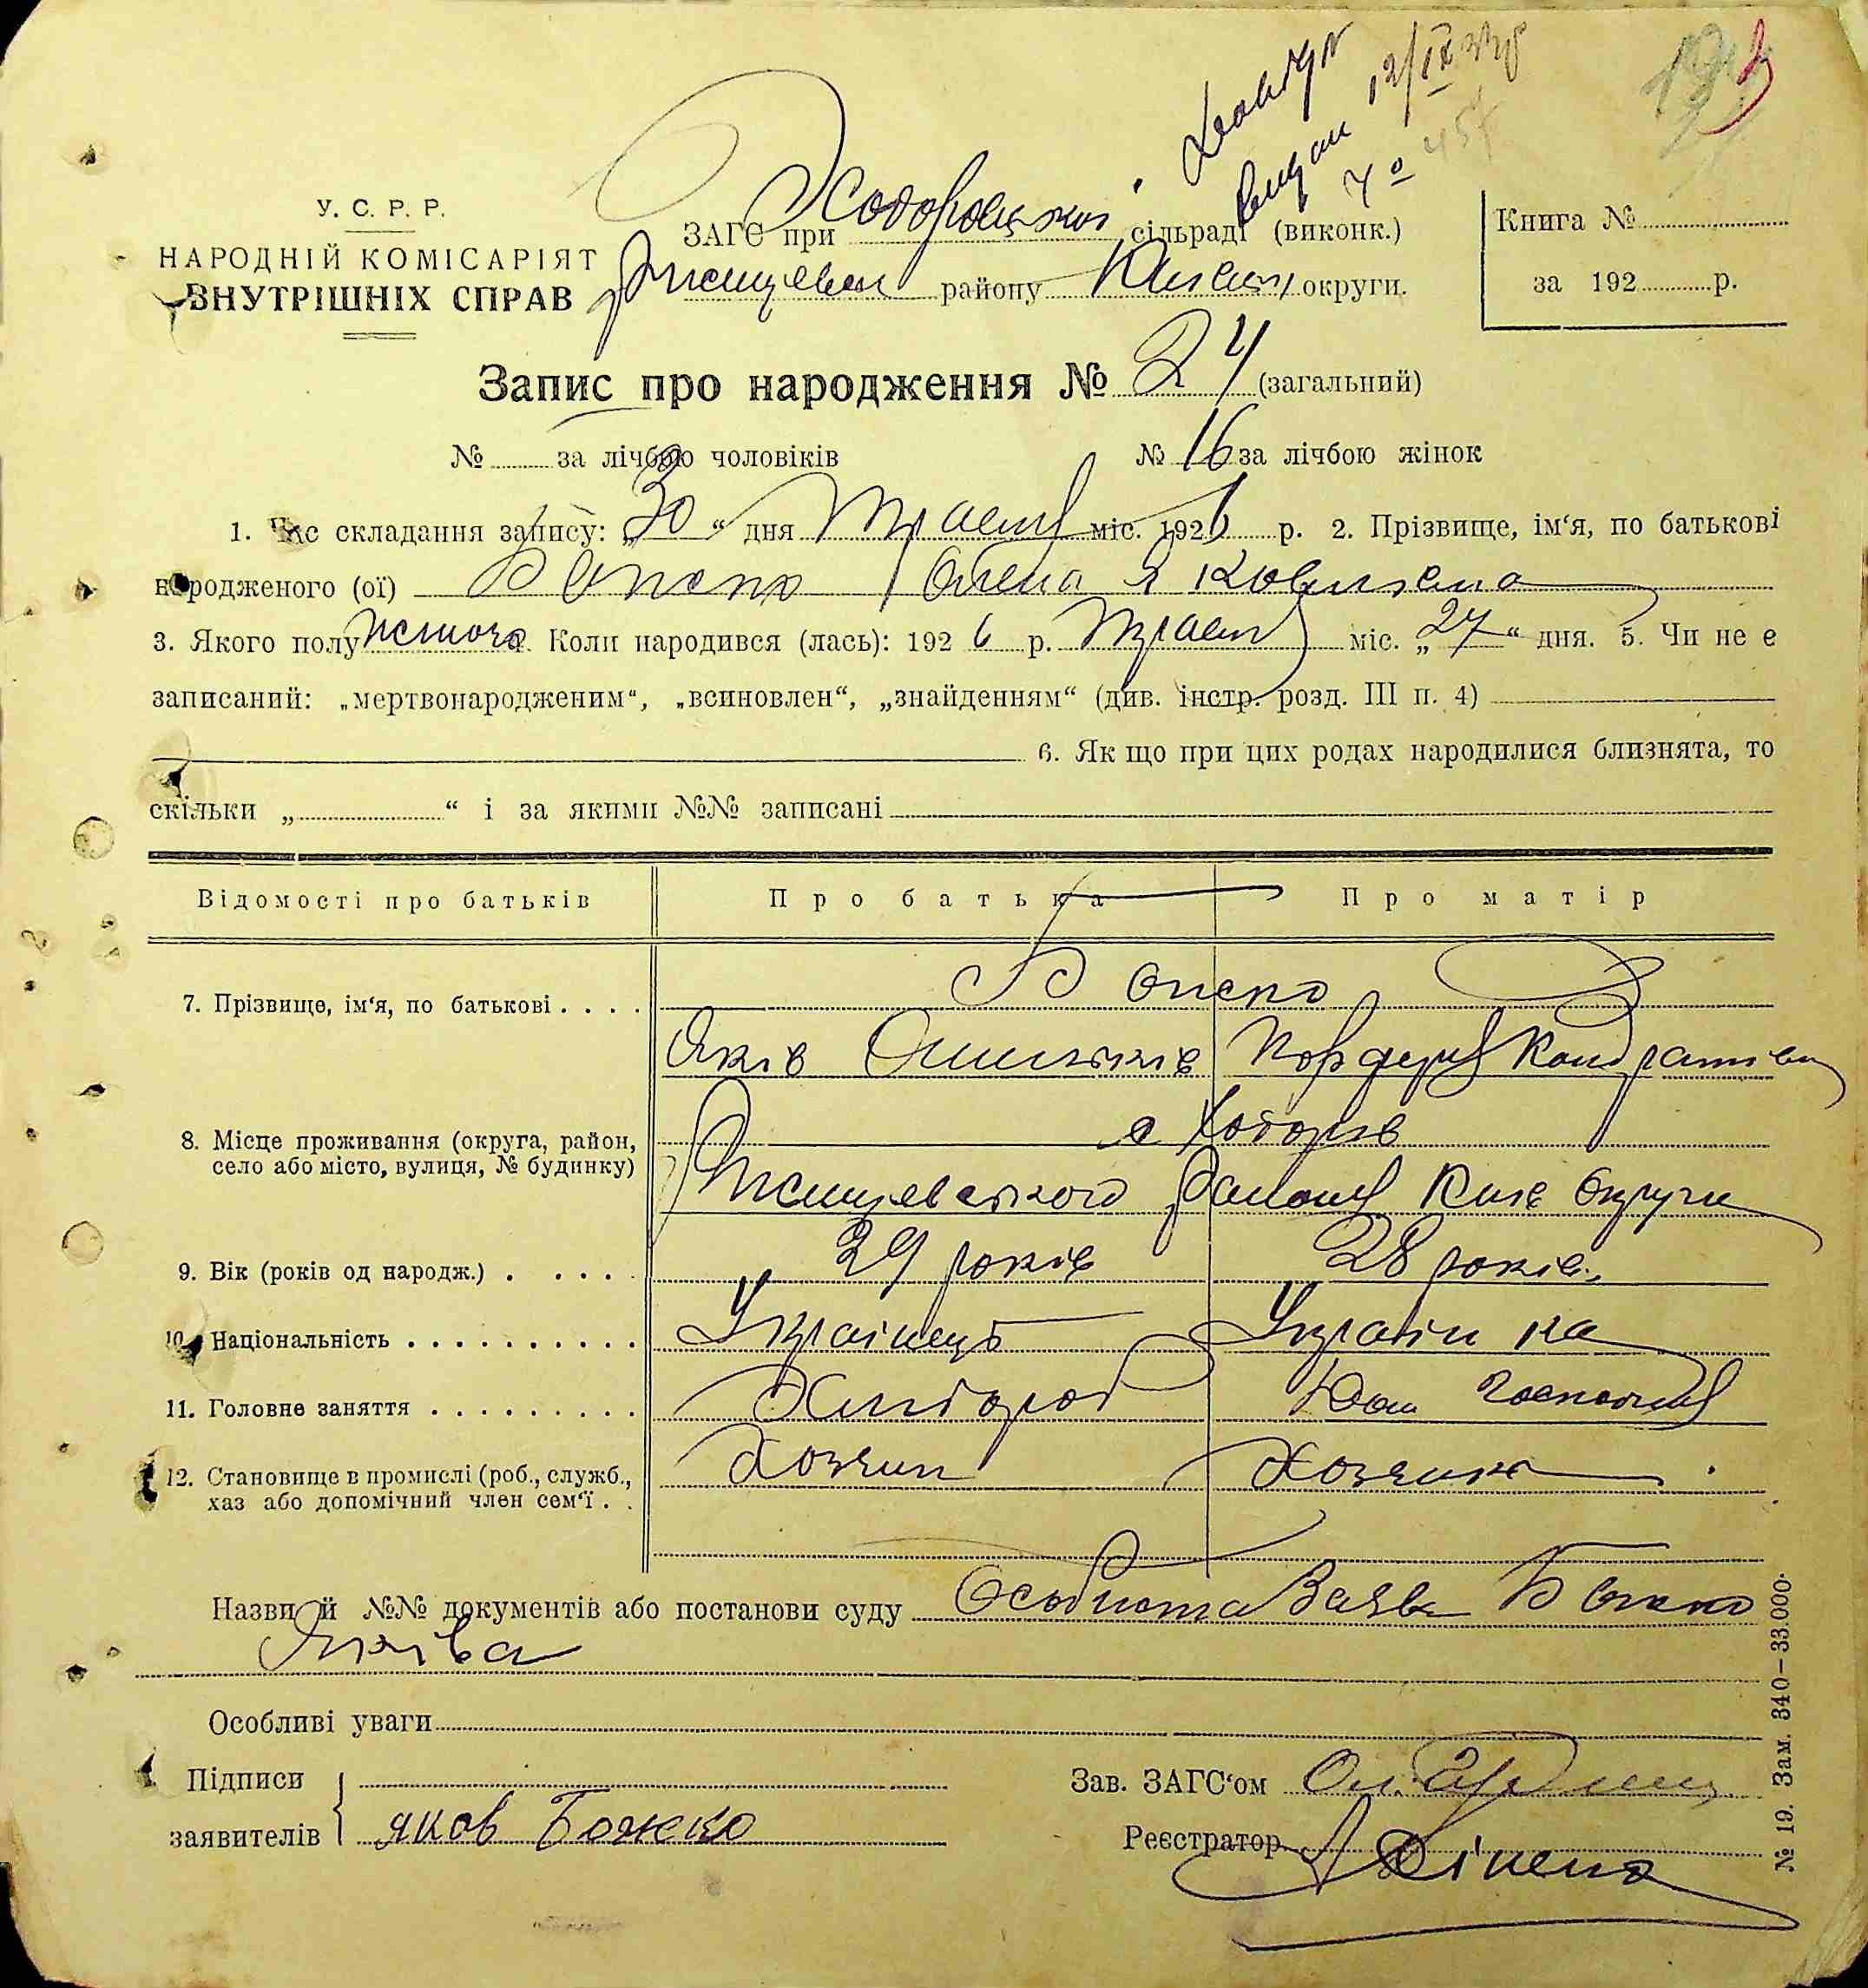 У. С. Р. Р.
НАРОДНІЙ КОМІСАРІЯТ
ВНУТРІШНІХ СПРАВ
12/IX
ЗАГС при Ходоровській сільраді (виконк.)
Ржищевськ району Київськ округи.
Книга №
за 192 р.
Запис про народження № 24 (загальний)
№ за лічбою чоловіків № 16 за лічбою жінок
1. Час складання запису: „30“ дня Травня міс. 1926 р. 2. Прізвище, ім‘я, по батькові
народженого (ої) Божко Олена Яковлівна
3. Якого полу жіночо. Коли народився (лась): 1926 р. Травня міс. „27“ дня. 5. Чи не є
записаний: „мертвонародженим“, „всиновлен“, „знайденням“ (див. інстр. розд. III п. 4)
6. Як що при цих родах народилися близнята, то
скільки „ “ і за якими №№ записані
Відомості про батьків Про батька Про матір
7. Прізвище, ім‘я, по батькові Божко
Яків Кондратівна
8. Місце проживання (округа, район, село або місто, вулиця, № будинку) с Ходорів
Ржищевського Району Київ Округи
9. Вік (років од народж.) 29 років 28 років
10. Національність Українець Українка
11. Головне заняття Хлібороб Дом Господня
12. Становище в промислі (роб., служб., хаз або допомічний член сем‘ї Хозяин Хозяика
Назви й №№ документів або постанови суду Особиста Заява Божко
Яківа
Особливі уваги
Підписи
заявителів яков Божко
Зав. ЗАГС‘ом
Реєстратор
№ 19. Зам. 340–33.000.